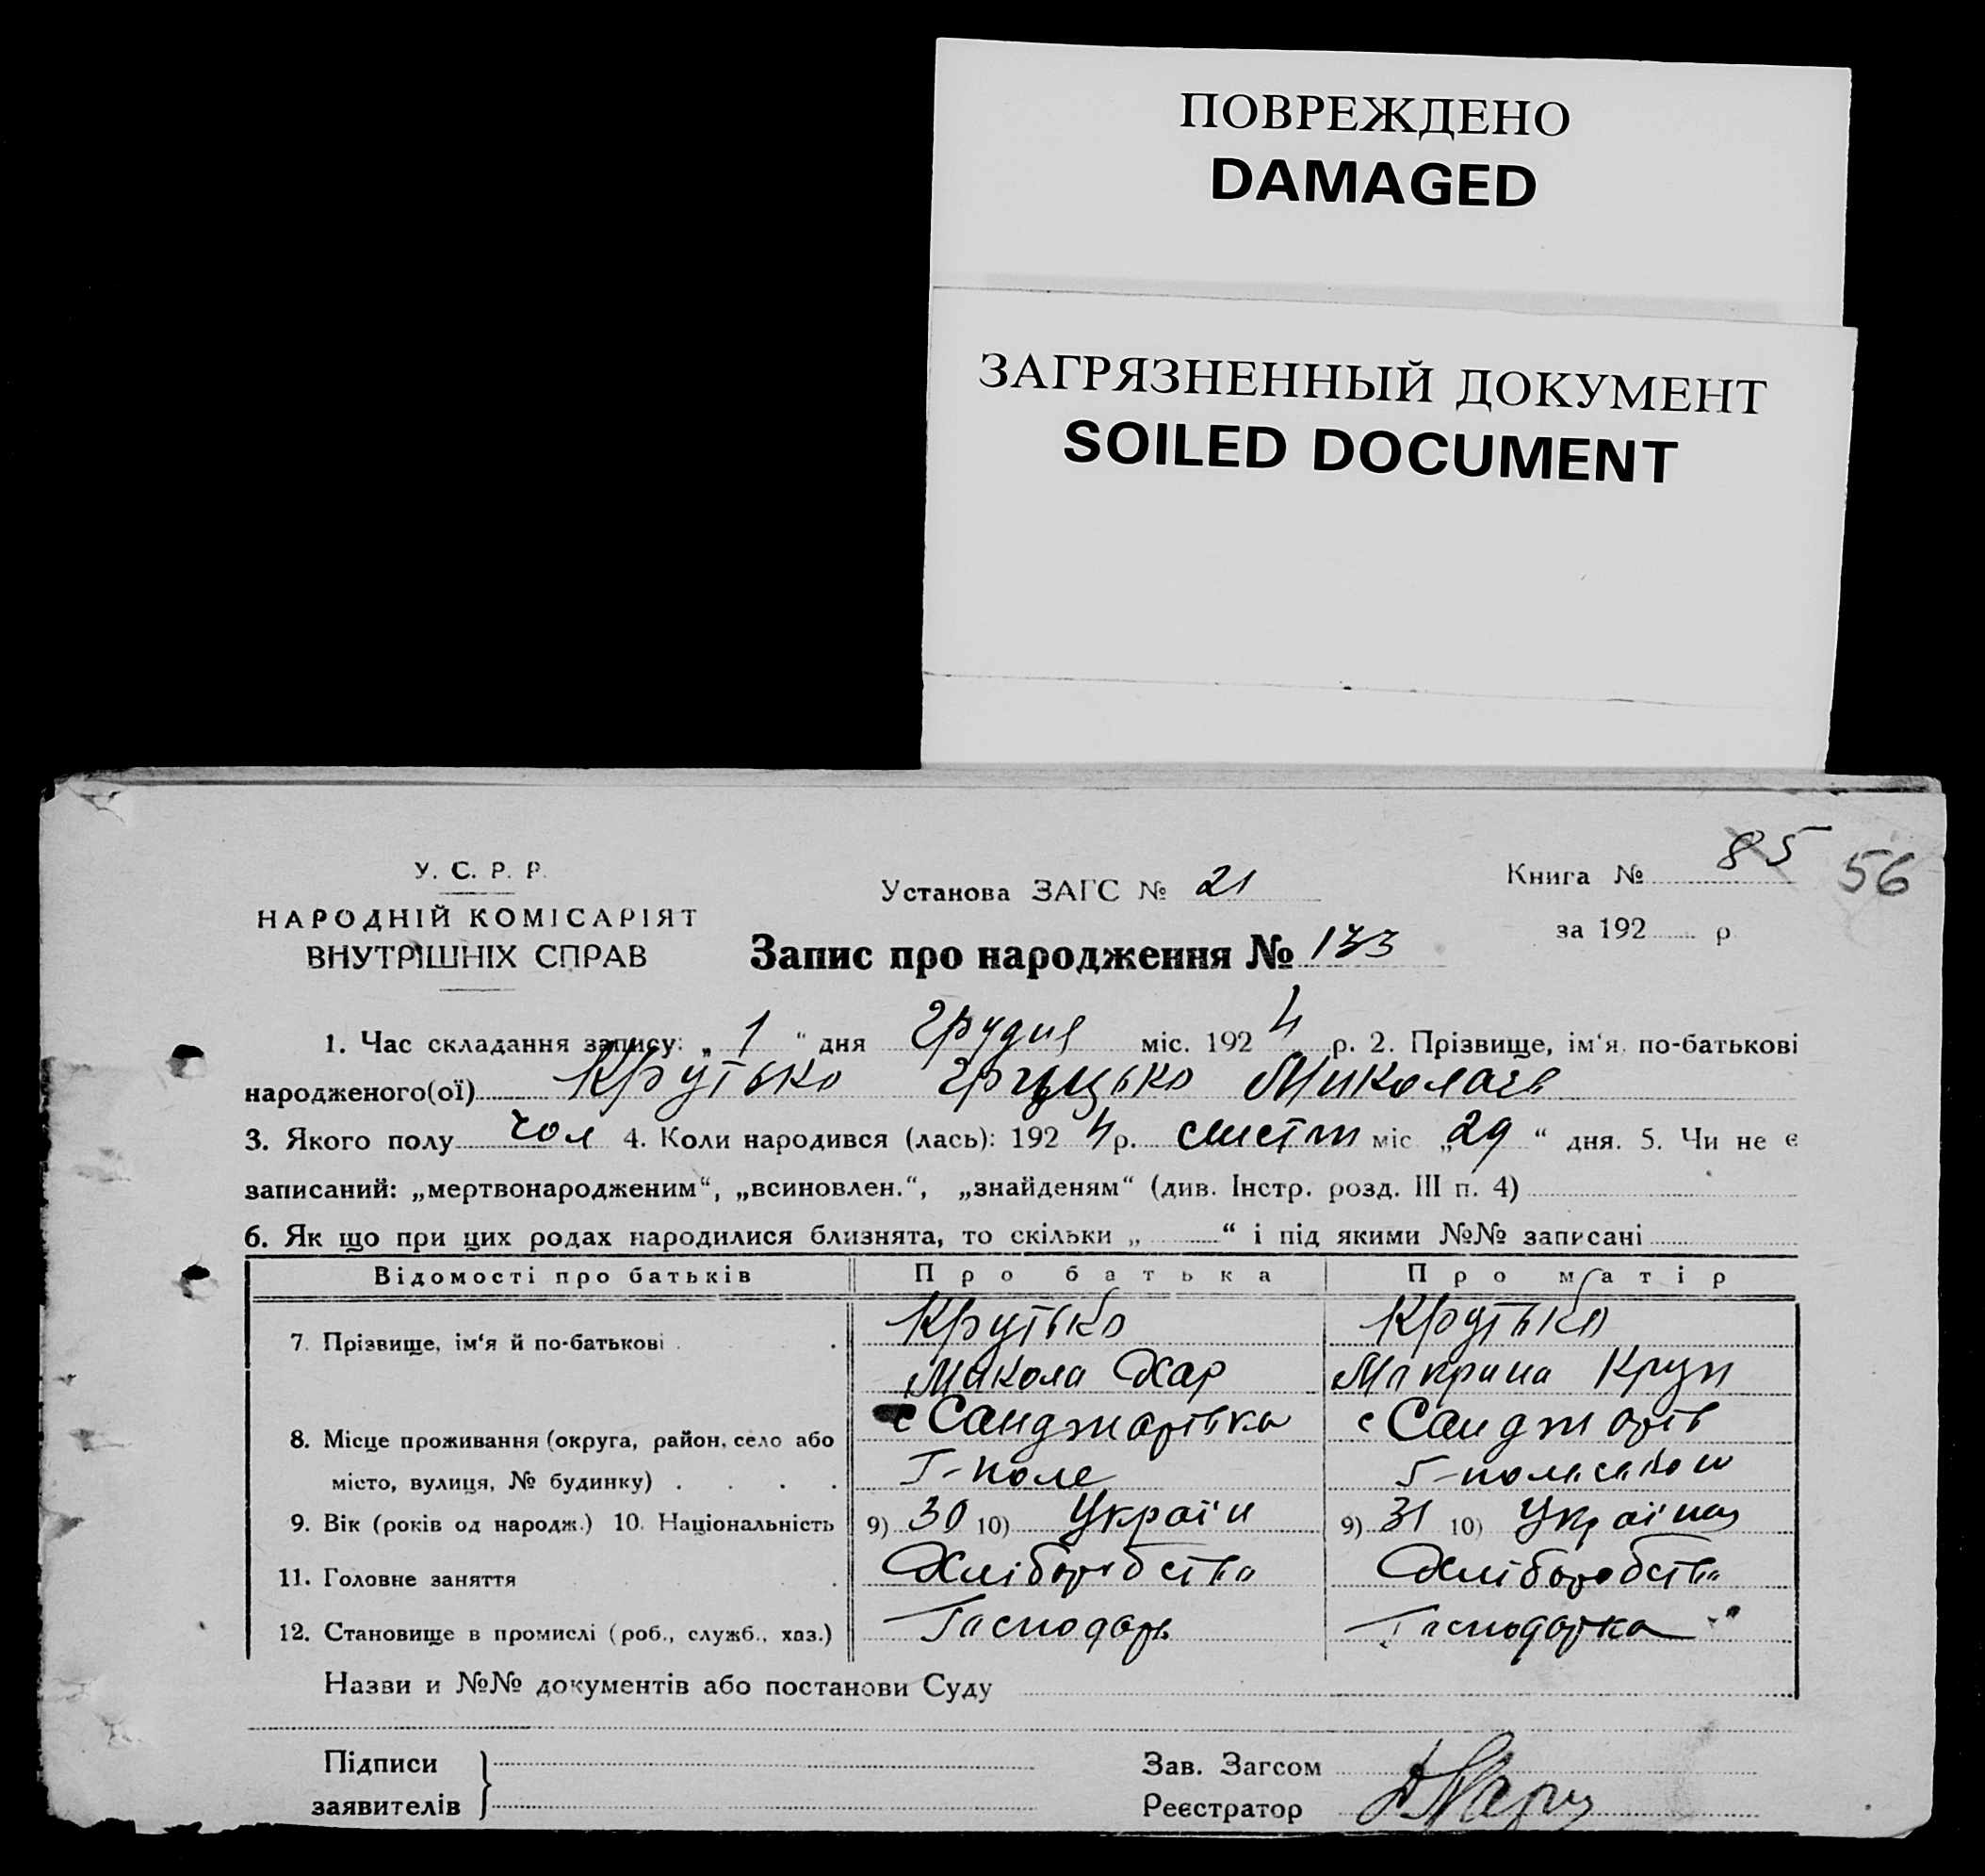 ПОВРЕЖДЕНО
DAMAGED
ЗАГРЯЗНЕННЫЙ ДОКУМЕНТ
SOILED DOCUMENT
У. С. Р. Р.
НАРОДНІЙ КОМІСАРІЯТ
ВНУТРІШНІХ СПРАВ
Установа ЗАГС № 21
Книга № 85 56
за 192 р
Запис про народження № 133
1. Час складання запису: „ 1 “ дня Грудня міс. 192 4 р. 2. Прізвище, ім‘я, по-батькові
народженого(ої) Крутько Грыцько Миколаев
3. Якого полу чол 4. Коли народився (лась): 192 4 р. листп міс „ 29 “ дня. 5. Чи не є
записаний: „мертвонародженим“, „всиновлен.“, „знайденям“ (див. Інстр. розд. III п. 4)
6. Як що при цих родах народилися близнята, то скільки „ “ і під якими №№ записані
Відомості про батьків Про батька Про матір
7. Прізвище, ім‘я й по-батькові Крутько Крутько
Микола Хар Макрина
8. Місце проживання (округа, район, село або с Санджарівка с Санджарів
місто, вулиця, № будинку) Г-поле
9. Вік (років од народж.) 10. Національність 9) 30 10) Україн 9) 31 10) Україна
11. Головне заняття Хліборобства Хліборобства
12. Становище в промислі (роб., служб., хаз.) Гасподарь Гасподарка
Назви и №№ документів або постанови Суду
Підписи
заявителів
Зав. Загсом
Реєстратор